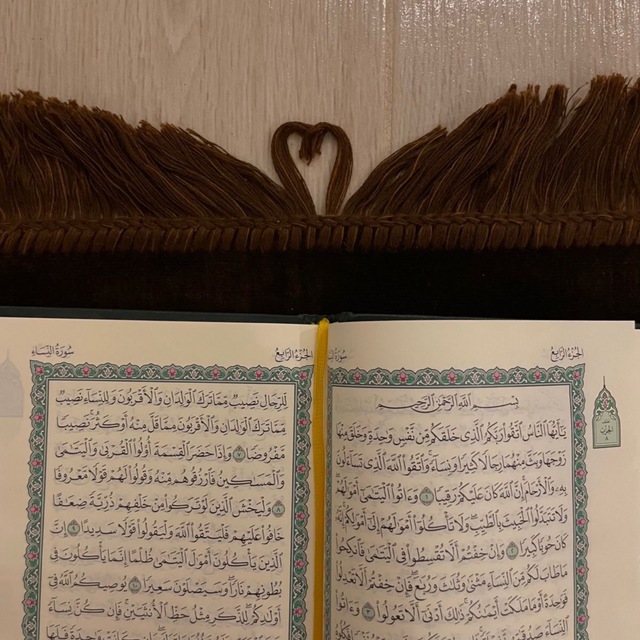 الجزء الرابع
سورة النساء
بِسْمِ ٱللَّهِ ٱلرَّحْمَٰنِ ٱلرَّحِيمِ
يَٰٓأَيُّهَا ٱلنَّاسُ ٱتَّقُوا۟ رَبَّكُمُ ٱلَّذِى خَلَقَكُم مِّن نَّفْسٍ وَٰحِدَةٍ وَخَلَقَ مِنْهَا
زَوْجَهَا وَبَثَّ مِنْهُمَا رِجَالًا كَثِيرًا وَنِسَآءً وَٱتَّقُوا۟ ٱللَّهَ ٱلَّذِى تَسَآءَلُونَ
بِهِۦ وَٱلْأَرْحَامَ إِنَّ ٱللَّهَ كَانَ عَلَيْكُمْ رَقِيبًا ١ وَءَاتُوا۟ ٱلْيَتَٰمَىٰٓ أَمْوَٰلَهُمْ
وَلَا تَتَبَدَّلُوا۟ ٱلْخَبِيثَ بِٱلطَّيِّبِ وَلَا تَأْكُلُوٓا۟ أَمْوَٰلَهُمْ إِلَىٰٓ أَمْوَٰلِكُمْ إِنَّهُۥ
كَانَ حُوبًا كَبِيرًا ٢ وَإِنْ خِفْتُمْ أَلَّا تُقْسِطُوا۟ فِى ٱلْيَتَٰمَىٰ فَٱنكِحُوا۟
مَا طَابَ لَكُم مِّنَ ٱلنِّسَآءِ مَثْنَىٰ وَثُلَٰثَ وَرُبَٰعَ فَإِنْ خِفْتُمْ أَلَّا تَعْدِلُوا۟
فَوَٰحِدَةً أَوْ مَا مَلَكَتْ أَيْمَٰنُكُمْ ذَٰلِكَ أَدْنَىٰٓ أَلَّا تَعُولُوا۟ ٣ وَءَاتُوا۟
ٱلنِّسَآءَ
الجزء الرابع
سورة النساء
لِّلرِّجَالِ نَصِيبٌ مِّمَّا تَرَكَ ٱلْوَٰلِدَانِ وَٱلْأَقْرَبُونَ وَلِلنِّسَآءِ نَصِيبٌ
مِّمَّا تَرَكَ ٱلْوَٰلِدَانِ وَٱلْأَقْرَبُونَ مِمَّا قَلَّ مِنْهُ أَوْ كَثُرَ نَصِيبًا
مَّفْرُوضًا ٧ وَإِذَا حَضَرَ ٱلْقِسْمَةَ أُو۟لُوا۟ ٱلْقُرْبَىٰ وَٱلْيَتَٰمَىٰ
وَٱلْمَسَٰكِينُ فَٱرْزُقُوهُم مِّنْهُ وَقُولُوا۟ لَهُمْ قَوْلًا مَّعْرُوفًا
٨ وَلْيَخْشَ ٱلَّذِينَ لَوْ تَرَكُوا۟ مِنْ خَلْفِهِمْ ذُرِّيَّةً ضِعَٰفًا
خَافُوا۟ عَلَيْهِمْ فَلْيَتَّقُوا۟ ٱللَّهَ وَلْيَقُولُوا۟ قَوْلًا سَدِيدًا ٩ إِنَّ
ٱلَّذِينَ يَأْكُلُونَ أَمْوَٰلَ ٱلْيَتَٰمَىٰ ظُلْمًا إِنَّمَا يَأْكُلُونَ فِى
بُطُونِهِمْ نَارًا وَسَيَصْلَوْنَ سَعِيرًا ١٠ يُوصِيكُمُ ٱللَّهُ فِىٓ
أَوْلَٰدِكُمْ لِلذَّكَرِ مِثْلُ حَظِّ ٱلْأُنثَيَيْنِ فَإِن كُنَّ نِسَآءً